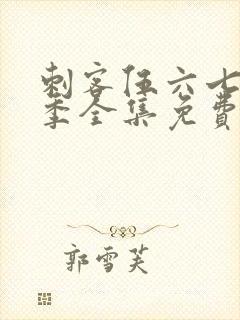 刺客伍六七
季全集免费
郭雪芙